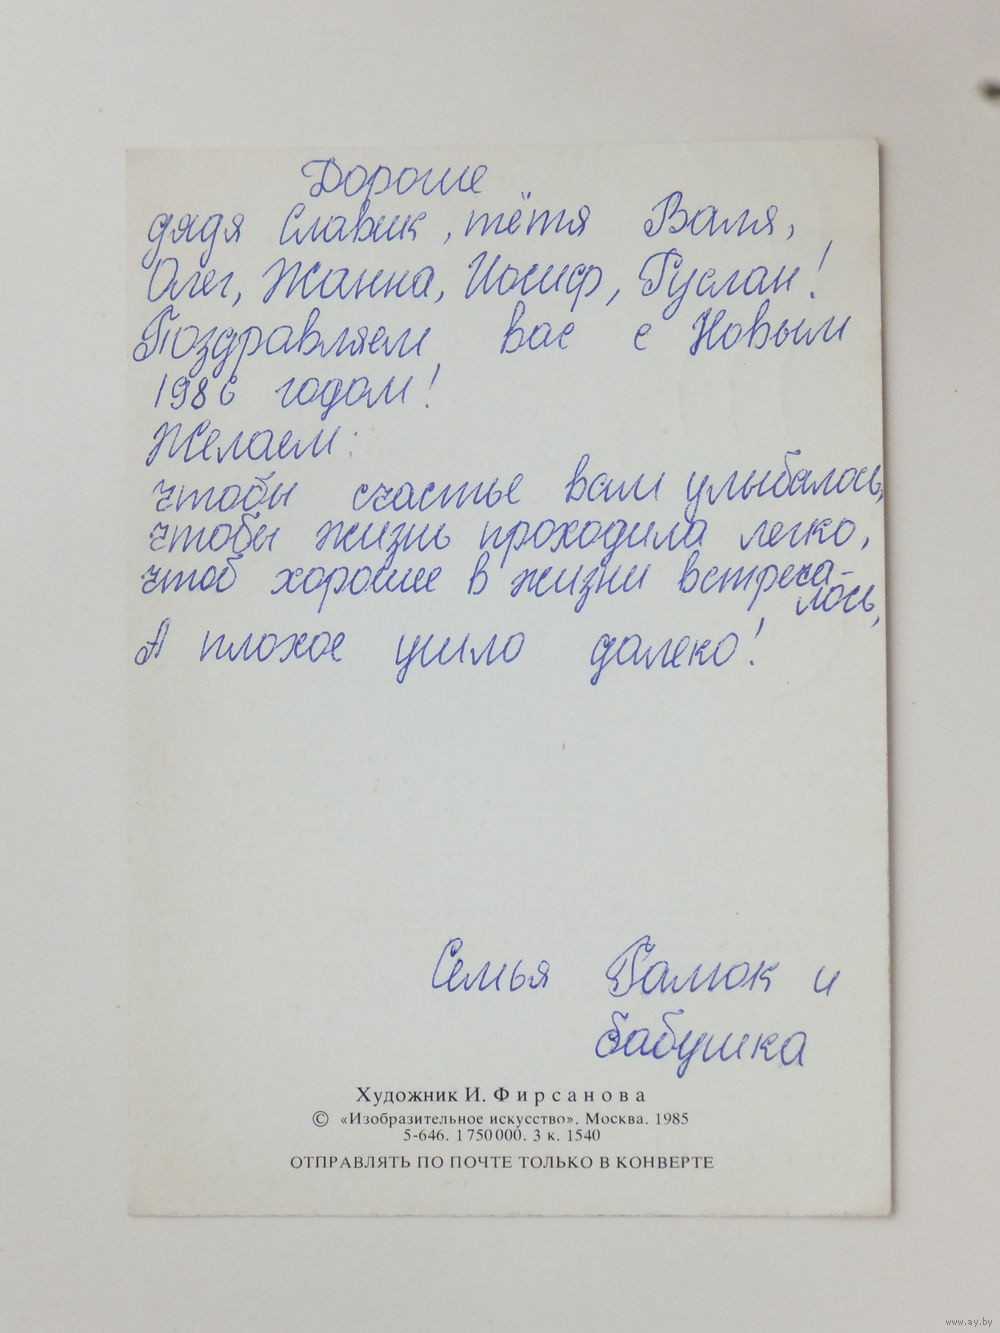 Дорогие
дядя Славик, тётя Валя,
Олег, Жанна, Иосиф, Руслан!
Поздравляем вас с Новым
1986 годом!
Желаем:
чтобы счастье вам улыбалось,
чтобы жизнь проходила легко,
чтоб хорошее в жизни встреча-
лось,
А плохое ушло далеко!
Семья Гамок и
бабушка
Художник И. Фирсанова
© «Изобразительное искусство». Москва. 1985
5-646. 1 750 000. 3 к. 1540
ОТПРАВЛЯТЬ ПО ПОЧТЕ ТОЛЬКО В КОНВЕРТЕ
www.ay.by